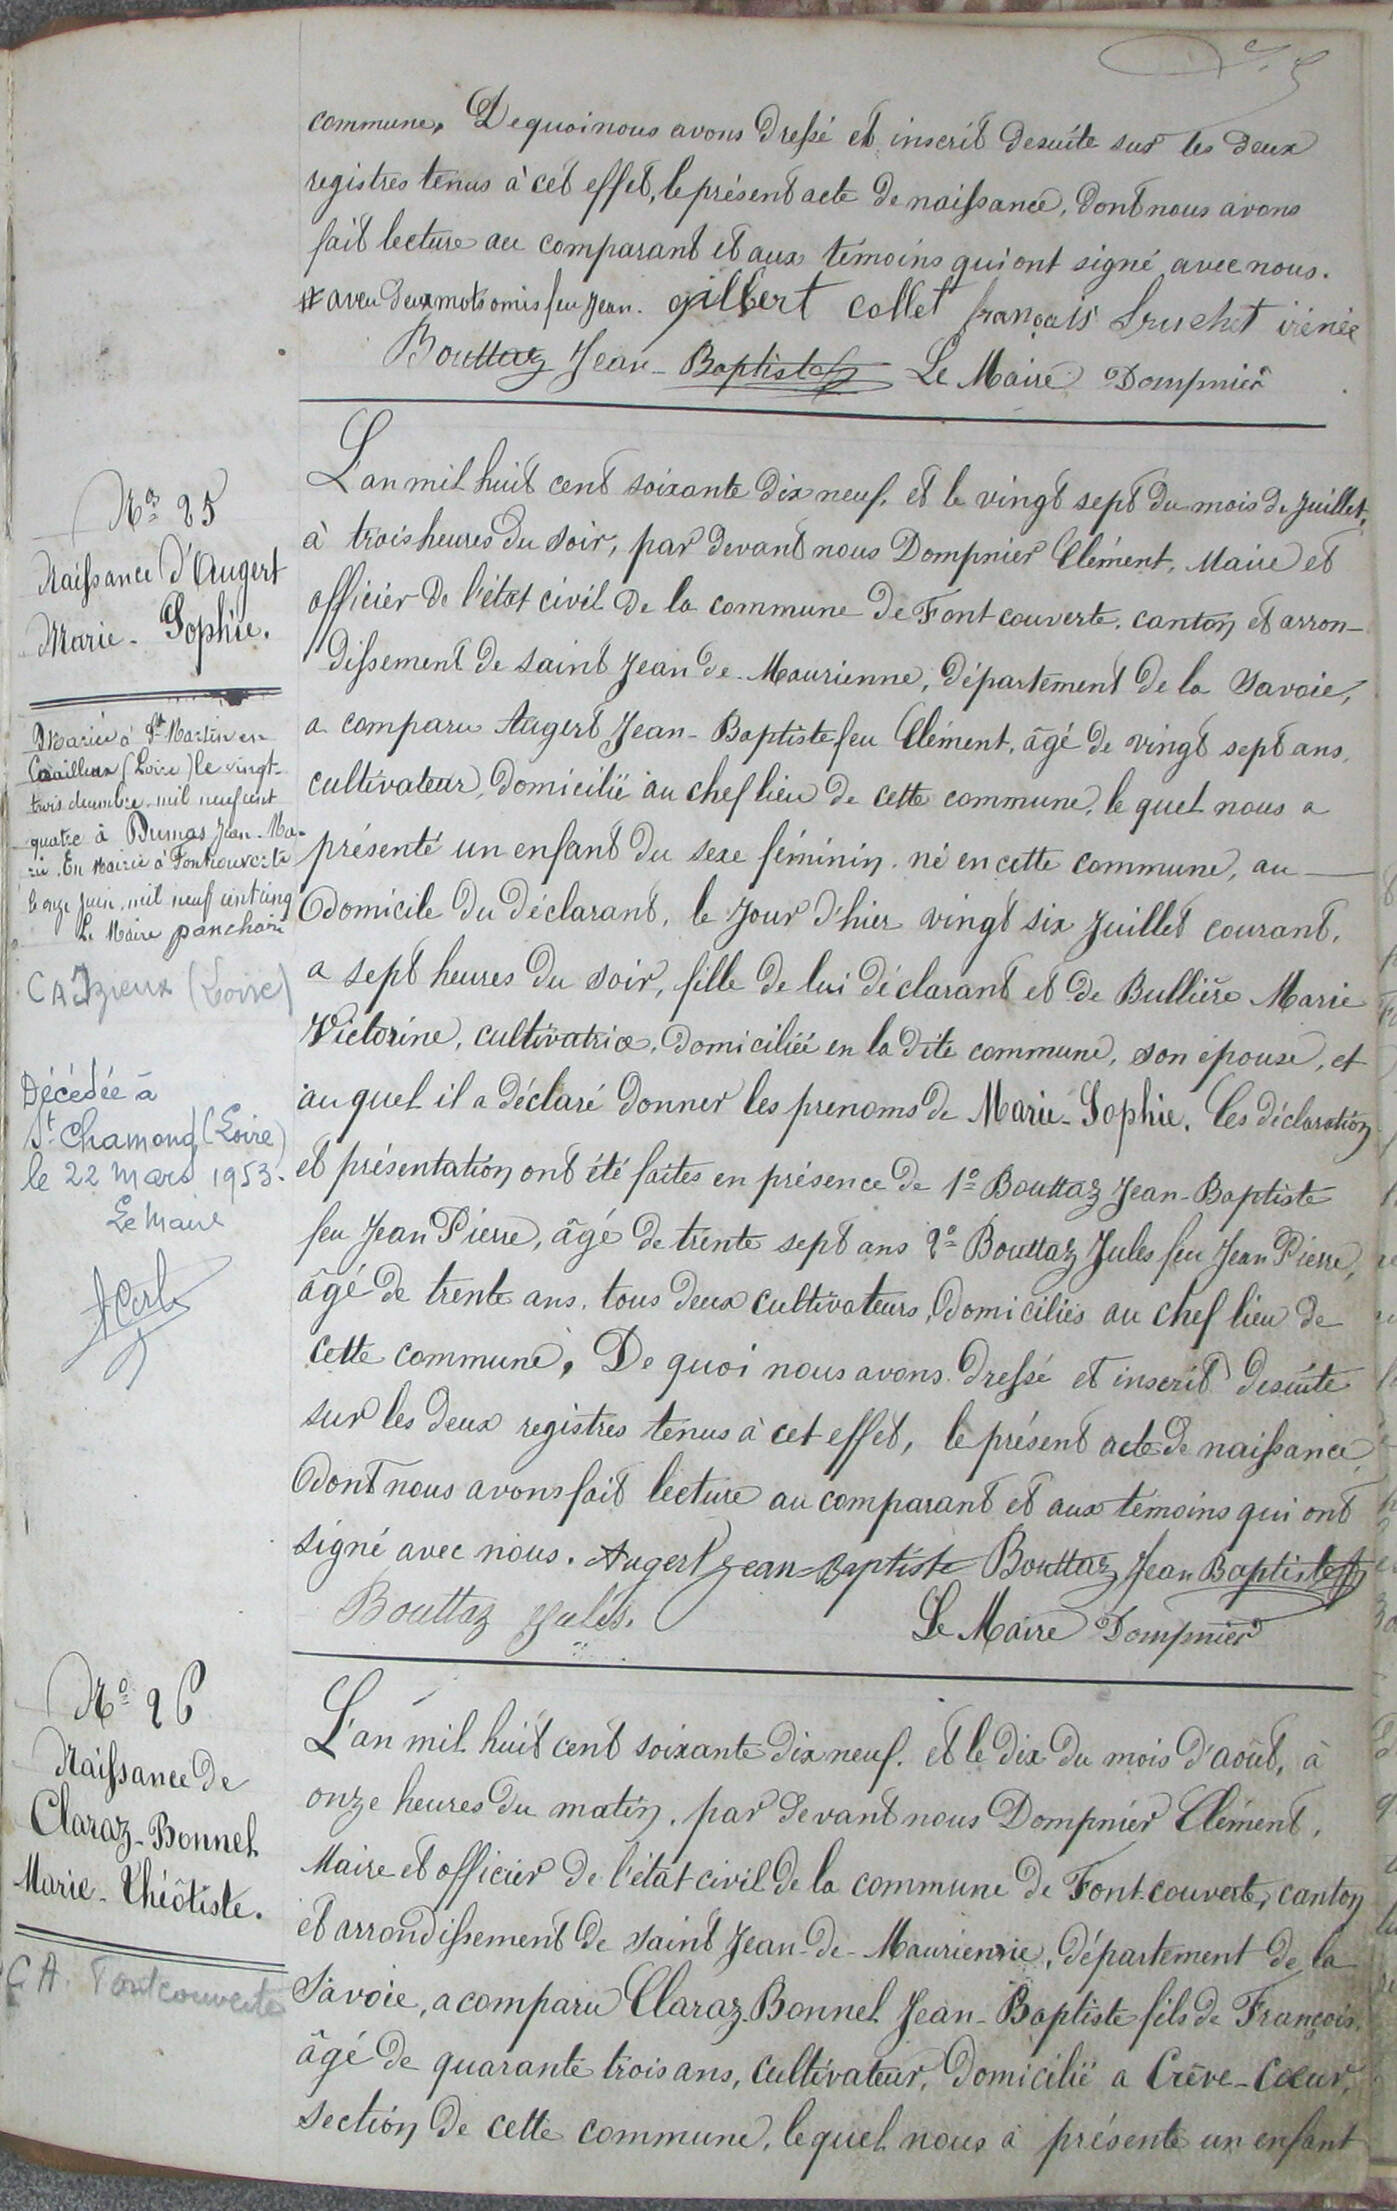 commune. De quoi nous avons dressé et inscrit desuite sur les deux
registres tenus à cet effet, le présent acte de naissance, dont nous avons
fait lecture au comparant et aux témoins qui ont signé avec nous.
deux mots omis feu Jean. gilbert collet françois Truchet irénée
Bouttaz Jean-Baptiste Le Maire Dompnier
N° 25
Naissance d'Augert
Marie-Sophie.
Mariée à St Martin en
Coailleux (Loire) le vingt-
trois decembre mil neuf cent
quatre à Dumas Jean-Ma-
rie. En Mairie à Fontcouverte
le onze juin mil neuf cent cinq
Le Maire
CA Izieux (Loire)
Décédée à
St. Chamond (Loire)
le 22 mars 1953.
Le Maire
L'an mil huit cent soixante dix neuf. et le vingt sept du mois de Juillet,
à trois heures du soir, par devant nous Dompnier Clément, Maire et
officier de l'état civil de la commune de Fontcouverte, canton et arron-
dissement de saint Jean de-Maurienne, département de la Savoie,
a comparu Augert Jean-Baptiste feu Clément, âgé de vingt sept ans,
cultivateur, domicilié au chef lieu de cette commune, le quel nous a
présenté un enfant du sexe féminin. né en cette commune, au
domicile du déclarant, le jour d'hier vingt six Juillet courant,
a sept heures du soir, fille de lui déclarant et de Bullière Marie
Victorine, cultivatrice, domiciliée en la dite commune, son épouse, et
au quel il a déclaré donner les prenoms de Marie-Sophie. Ces déclaration
et présentation ont été faites en présence de 1° Bouttaz Jean-Baptiste
feu Jean Pierre, âgé de trente sept ans 2° Bouttaz Jules feu Jean Pierre,
âgé de trente ans, tous deux cultivateurs, domiciliés au chef lieu de
cette commune. De quoi nous avons dressé et inscrit desuite
sur les deux registres tenus à cet effet, le présent acte de naissance,
dont nous avons fait lecture au comparant et aux témoins qui ont
signé avec nous. Augert Jean-Baptiste Bouttaz Jean Baptiste
Bouttaz jules. Le Maire Dompnier
N° 26
Naissance de
Claraz-Bonnel
Marie-Théôtiste.
CA. Fontcouverte
L'an mil huit cent soixante dix neuf. et le dix du mois d'août, à
onze heures du matin, par devant nous Dompnier Clément,
Maire et officier de l'état civil de la commune de Fontcouverte, canton
et arrondissement de saint Jean-de-Maurienne, département de la
Savoie, a comparu Claraz-Bonnel Jean-Baptiste fils de François,
âgé de quarante trois ans, cultivateur, domicilié a Crève-Cœur,
section de cette commune, lequel nous à présenté un enfant